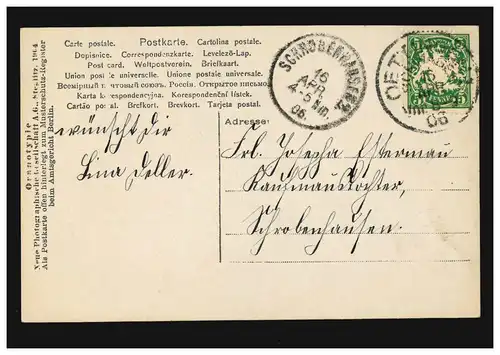 Carte postale. Postkarte. Cartolina postale.
Dopisnice. Correspondenzkarte. Levelező-Lap.
Post card. Weltpostverein. Briefkaart.
Union postale universelle. Unione postale universale.
Всемірный почтовый союзъ. Россія. Открытое письмо.
Karta korrespondencyjna. Korespondenční lístek.
Cartão postal. Brefkort. Brevkort. Tarjeta postal.
Orthotypie
Neue Photographische Gesellschaft A.G., Steglitz 1904
Als Postkarte offen hinterlegt zum Musterschutz-Register
beim Amtsgericht Berlin.
wünscht dir
Lina Deller.
SCHROBENHAUSEN
16
APR
4-5 NM.
06.
OETT
16
APR
06
5
Adresse:
Frl. Josepha Estermau
Kaufmannstochter,
Schrobenhausen.